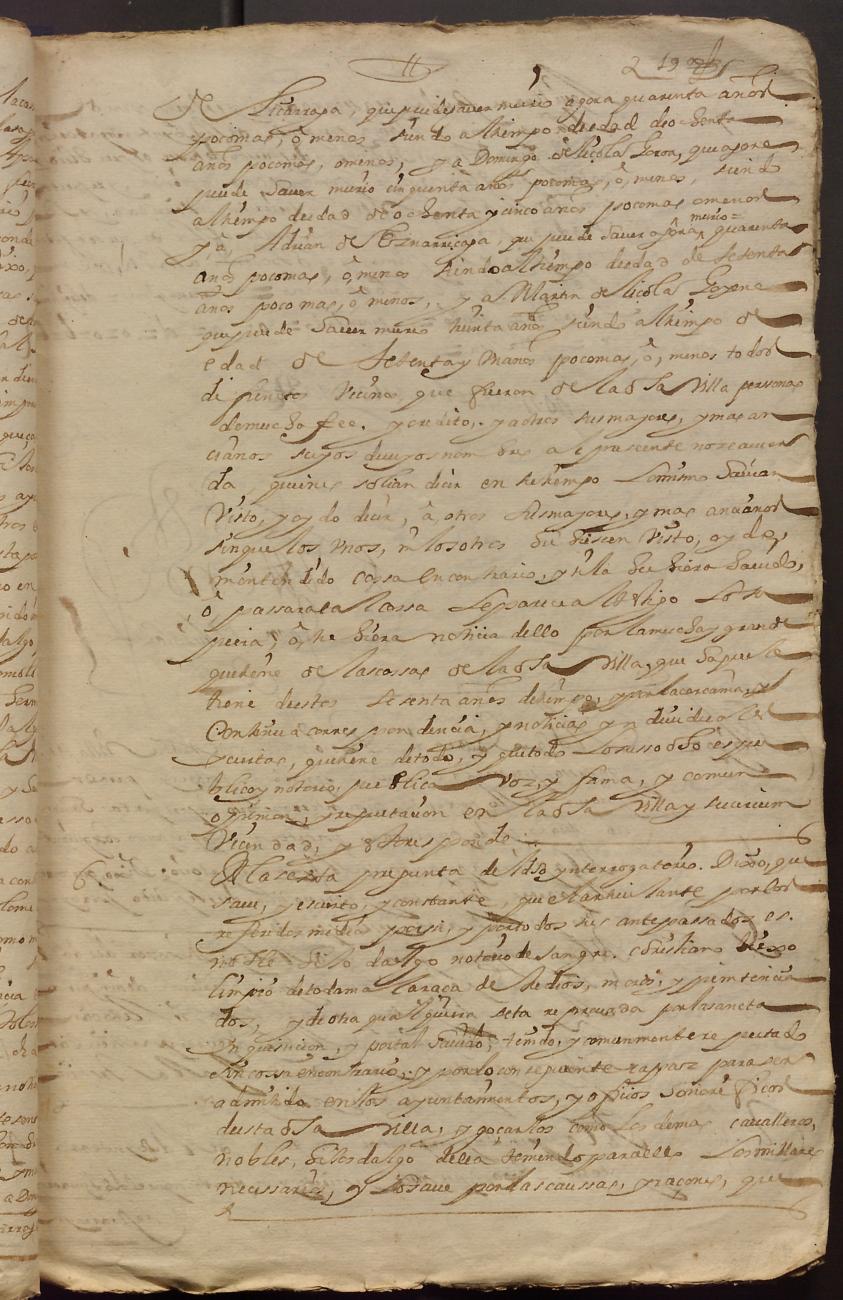 de Licarraga, que puede saver murio agora quarenta años
pocomas, ô menos siendo altiempo de edad de ochenta
años pocomas, omenos, y a Domingo de Nicolas que agora
puede saver murio cinquenta años pocomas, ô, menos, siendo
altiempo de edad de ochenta y cinco años pocomas omenos
y, â, Adrian de que puede saver agora, murio= quarenta
años pocomas, ô, menos siendo altiempo de edad de setenta
años pocomas, ô menos, y a Martin de Nicolas Goyena
que puede saver murio treinta años siendo altiempo de
edad de setenta y años pocomas, ô, menos todos
difuntos vecinos que fueron de la dha Villa personas
demucha fee. y credito, y a otros sus mayores, y mas an
cianos suyos cuyos nombres al presente nose acuer
da quienes solian decir en su tiempo lomismo havian
visto, y oydo decir, â, otros sus mayores, y mas ancianos
sinque los unos, ni los otros hubiessen visto, oydo,
nientendido cossa encontrario, y si la hubiera havido,
ô passara otra cossa leparece al testigo lo su
piera, ô, tubiera noticia dello por la mucha y grande
que tiene de las cossas de la dha Villa, que a
tiene destos sesenta años de tiempo, y por la cercania, y
continua correspondencia, y noticias
que tiene detodo, y que todo lo suso dho es pu
blico y notorio, publica voz, y fama, y comun
opinion, y reputacion en la dha Villa y su circum
vecindad, y esto responde
6. A la sexta pregunta del dho ynterrogatorio. Dixo, que
save, y es cierto, y constante, que el articulante por los
referidos medios por si, y portodos sus antepassados es.
notorio hijo dalgo notorio de sangre. christiano biexo
limpio detoda mala raça de Judios, moros, y penitencia
dos, y de otra qualquiera seta reprovada por la sancta
Ynquisicion, y portal havido, tenido, y comunmente reputado
sin cossa encontrario, y por lo consiguiente capaz para ser
admitido en los ayuntamientos, y oficios honorificos
desta dha Villa, y goçarlos como los demas cavalleros,
nobles, hijos dalgo della teniendo para ello los millares
necessarios, y lo save por las caussas, y raçones, que